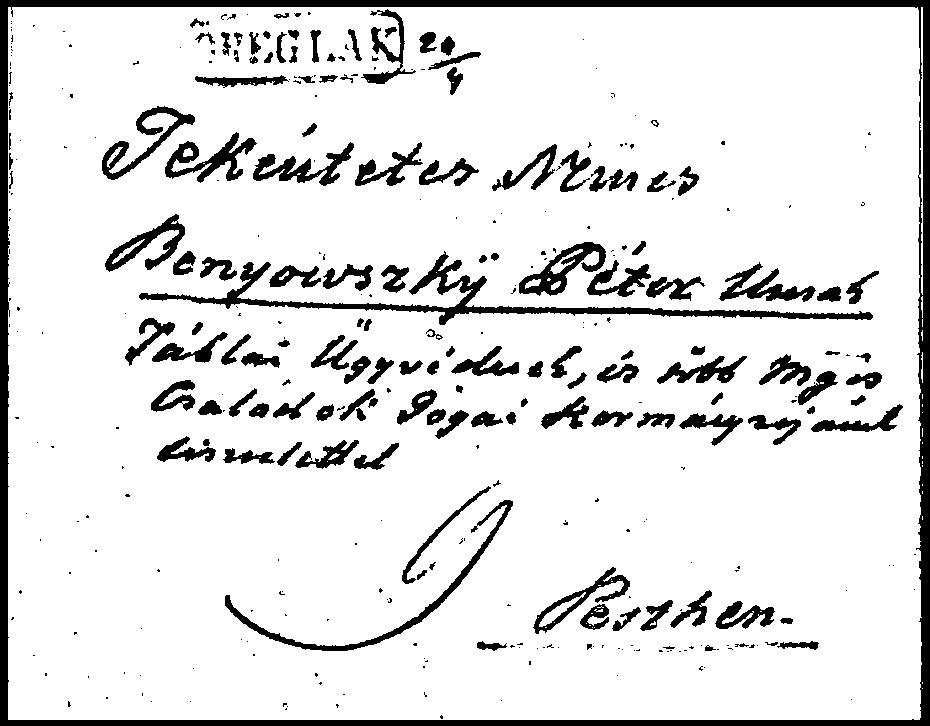 ÖREGLAK 20/4
Tekéntetes Nemes
Benyovszkÿ Péter Urnak
Táblai Ügyvédnek, és több Mgos
Családok Jógai Kormányzójának
tisztelettel
Pesthen.